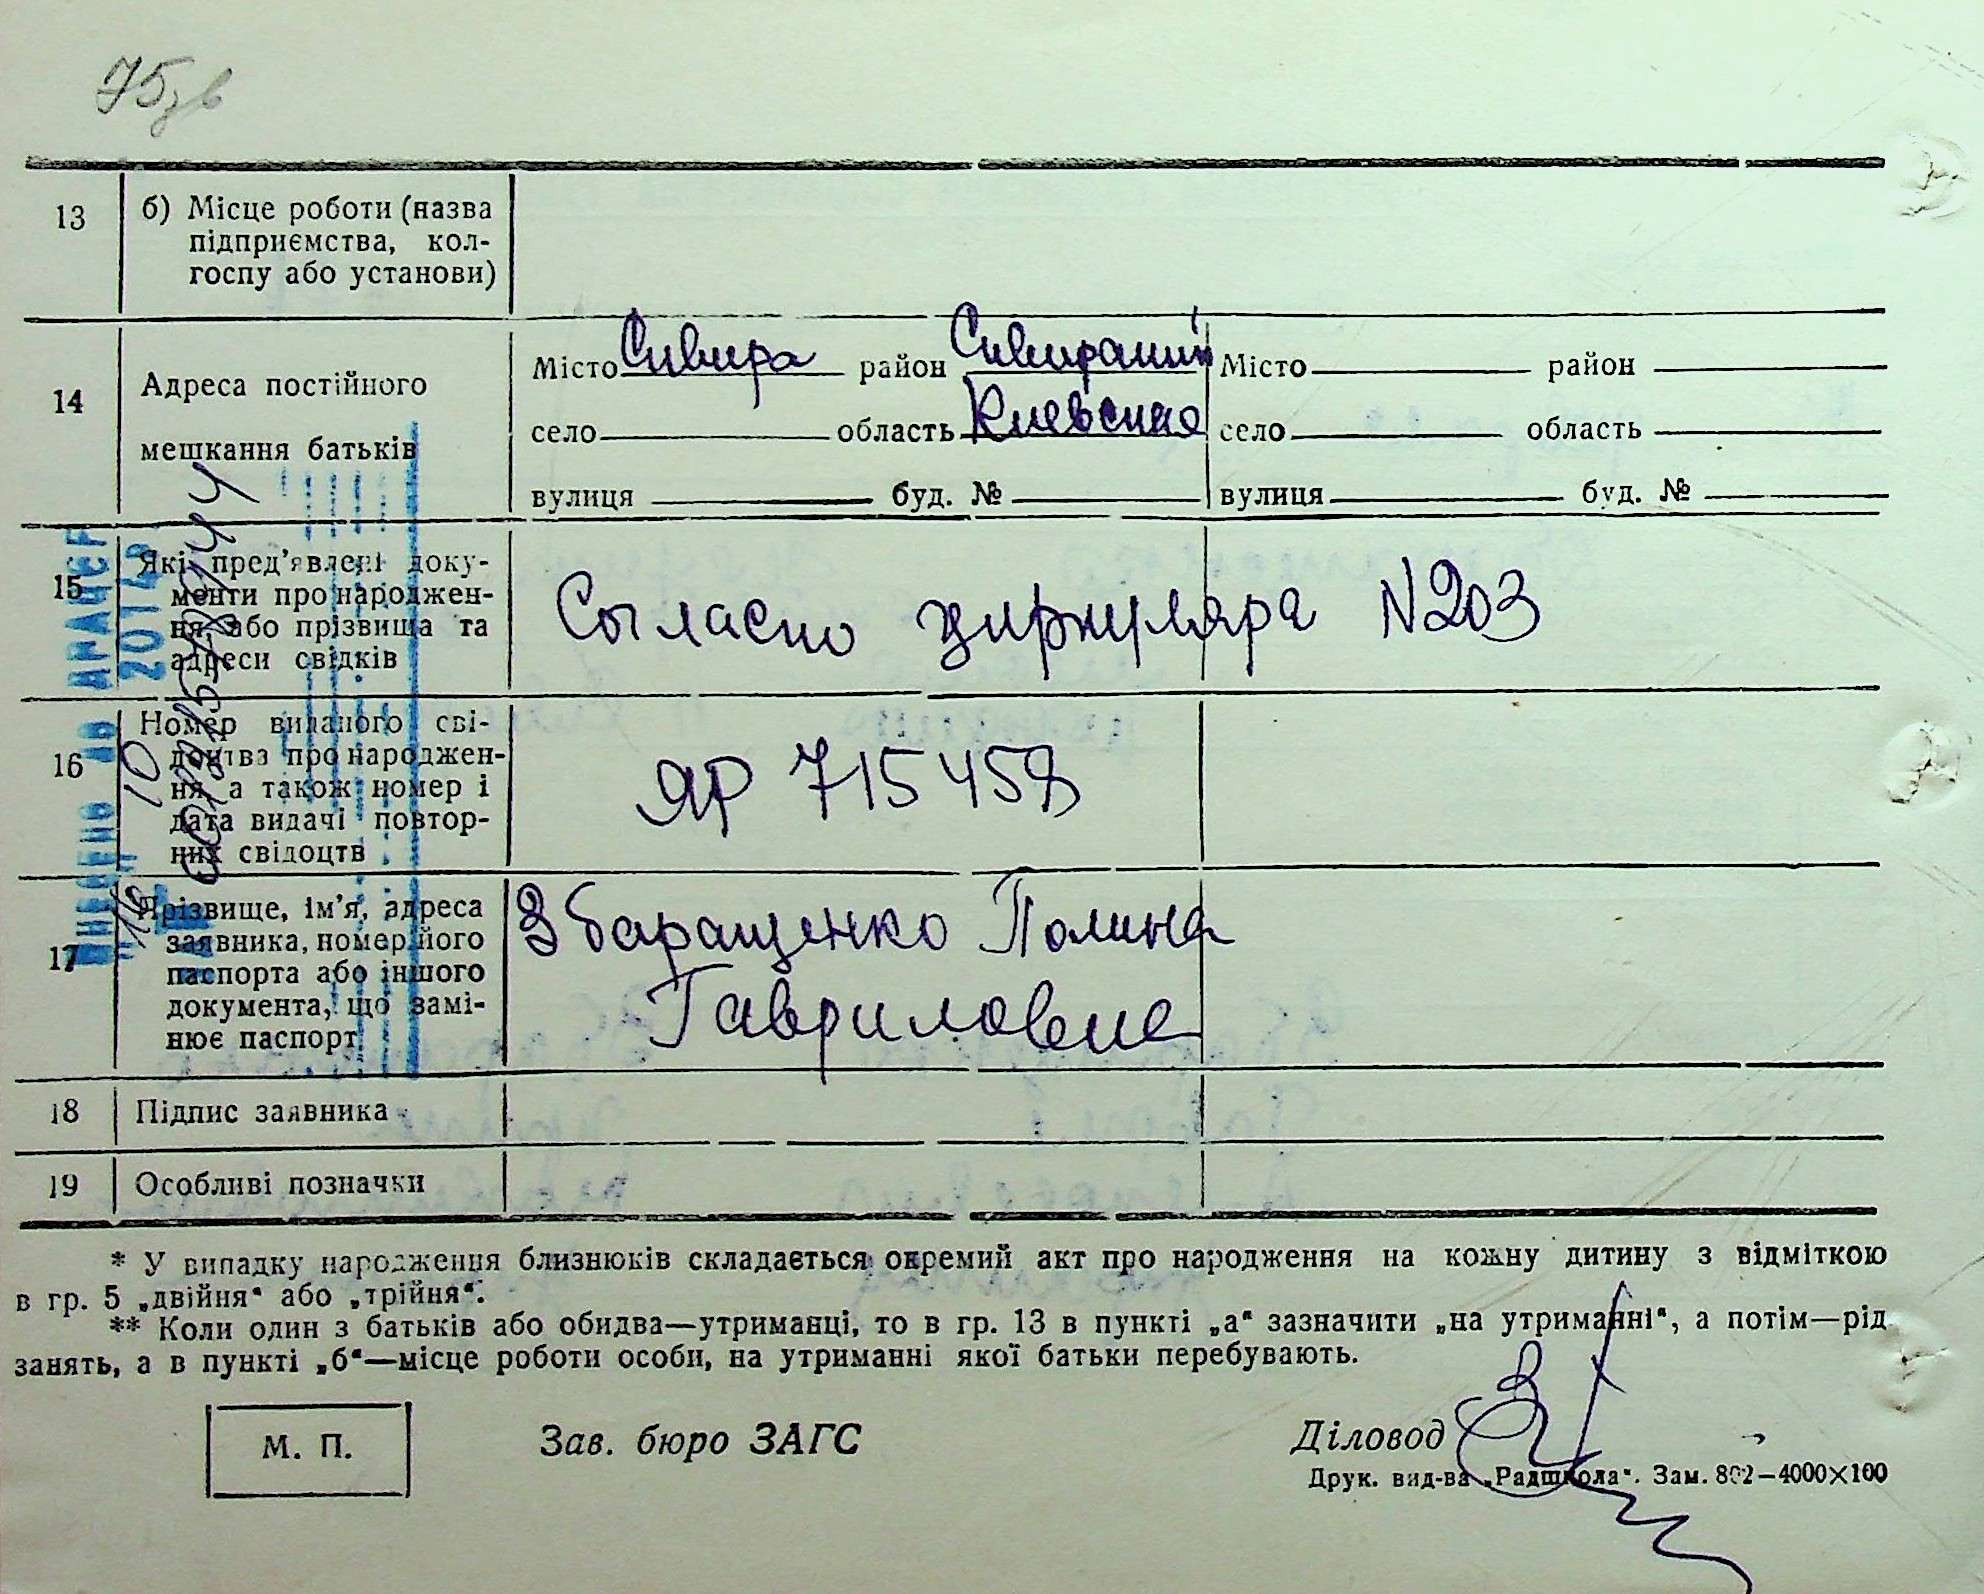 75зв
13 б) Місце роботи (назва
підприємства, кол-
госпу або установи)
14 Адреса постійного
мешкання батьків
Місто Сквира район Сквирський Місто район
село область Киевская село область
вулиця буд. № вулиця буд. №
15 Які пред'явлені доку-
менти про народжен-
ня, або прізвища та
адреси свідків
Согласно циркуляра N203
16 Номер виданого сві-
доцтва про народжен-
ня, а також номер і
дата видачі повтор-
них свідоцтв
ЯР 715458
17 Прізвище, ім'я, адреса
заявника, номер його
паспорта або іншого
документа, що замі-
нює паспорт
Збаращенко Полина
Гавриловна
18 Підпис заявника
19 Особливі позначки
* У випадку народження близнюків складається окремий акт про народження на кожну дитину з відміткою
в гр. 5 „двійня“ або „трійня“.
** Коли один з батьків або обидва—утриманці, то в гр. 13 в пункті „а“ зазначити „на утриманні“, а потім—рід
занять, а в пункті „б“—місце роботи особи, на утриманні якої батьки перебувають.
М. П. Зав. бюро ЗАГС Діловод
Друк. вид-ва „Радшкола“. Зам. 802—4000×100
ВНЕСЕНО ДО ДРАЦСГ
16 10 2014